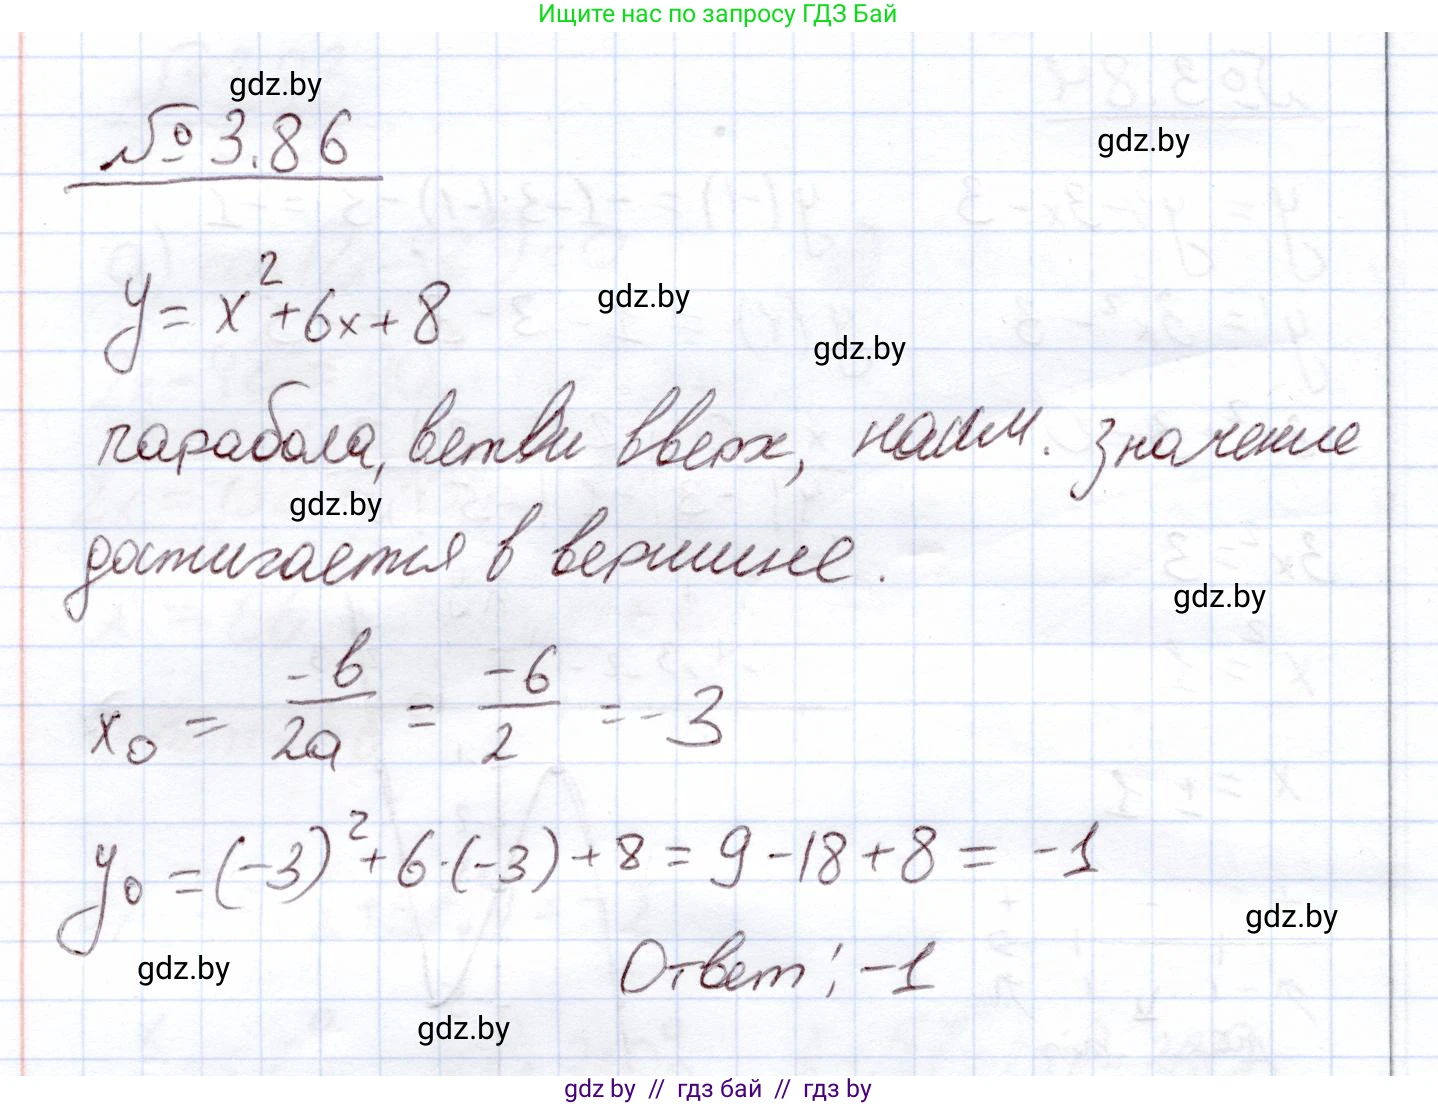 Ищите нас по запросу ГДЗ Бай
gdz.by
№ 3.86
gdz.by
y = x² + 6x + 8
gdz.by
gdz.by
парабола, ветви вверх, наим. значение
gdz.by
достигается в вершине.
gdz.by
x₀ = -b/2a = -6/2 = -3
y₀ = (-3)² + 6·(-3) + 8 = 9 - 18 + 8 = -1
gdz.by
gdz.by
Ответ: -1
gdz.by
gdz.by // гдз бай // гдз by